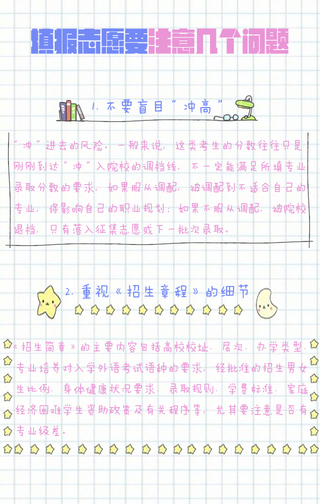 填报志愿要注意几个问题
1.不要盲目“冲高”
“冲”进去的风险，一般来说，这类考生的分数往往只是
刚刚到达“冲”入院校的调档线，不一定能满足所填专业
录取分数的要求，如果服从调配，被调配到不适合自己的
专业，得影响自己的职业规划；如果不服从调配，被院校
退档，只有落入征集志愿或下一批次录取。
2.重视《招生章程》的细节
《招生简章》的主要内容包括高校校址，层次，办学类型，
专业培养对入学外语考试语种的要求，经批准的招生男女
生比例，身体健康状况要求，录取规则，学费标准，家庭
经济困难学生资助政策及有关程序等，尤其要注意是否有
专业级差。